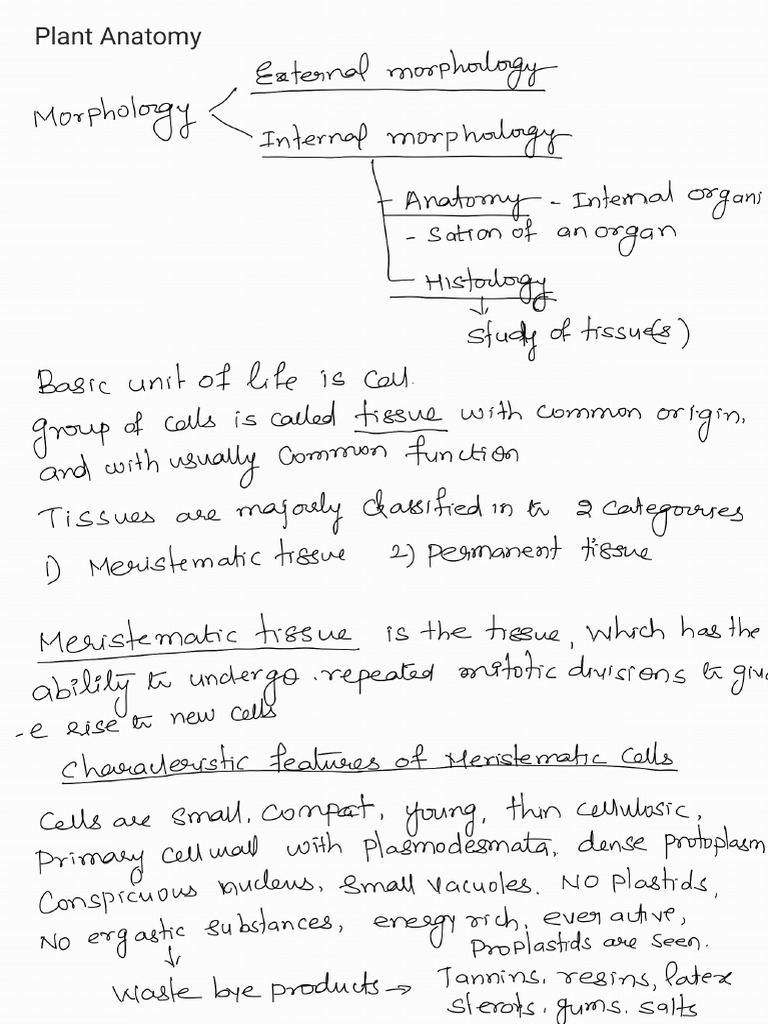 Plant Anatomy
External morphology
Morphology
Internal morphology
Anatomy - Internal organi
- sation of an organ
Histology
↓
study of tissue(s)
Basic unit of life is cell.
group of cells is called tissue with common origin,
and with usually common function
Tissues are majorly classified in to 2 categouries
1) Meristematic tissue 2) permanent tissue
Meristematic tissue is the tissue, which has the
ability to undergo repeated mitotic divisions to giv
-e rise to new cells
Characteristic features of Meristematic cells
Cells are small, compact, young, thin cellulosic,
Primary cell wall with plasmodesmata, dense protoplasm
Conspicuous nucleus, small vacuoles. NO plastids,
No ergastic substances, energy rich, ever active,
proplastids are seen.
↓
waste bye products → Tannins, resins, latex
sterols, gums, salts